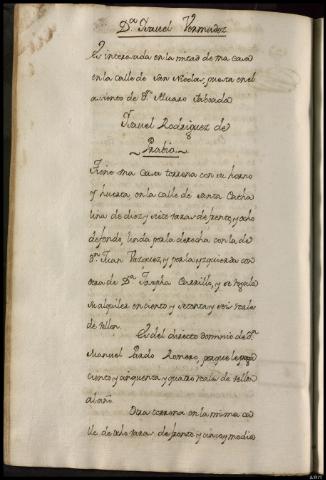 Dª Isavel Vermudez
Es interesada en la mitad de una casa
en la calle de San Nicolas, puesta en el
asiento de Dn. Alvaro Taboada
Isavel Rodriguez de
Prabio
Tiene una casa terrena con su horno
y huerta, en la calle de santa Cathali
lina de diez y siete varas de frente, y ocho
de fondo, linda por la derecha con la de
Dn. Juan Vazquez, y por la yzquierda con
otra de Dª Josepha Carrillo, y se regula
su alquiler en ciento y setenta y seis reales
de vellon.
Es del directo dominio de Dn.
Manuel Pardo Romero, por que le paga
ciento y cinquenta y quatro reales de vellon
al año.
Otra terrena en la misma ca
lle de ocho varas de frente y cinco y media